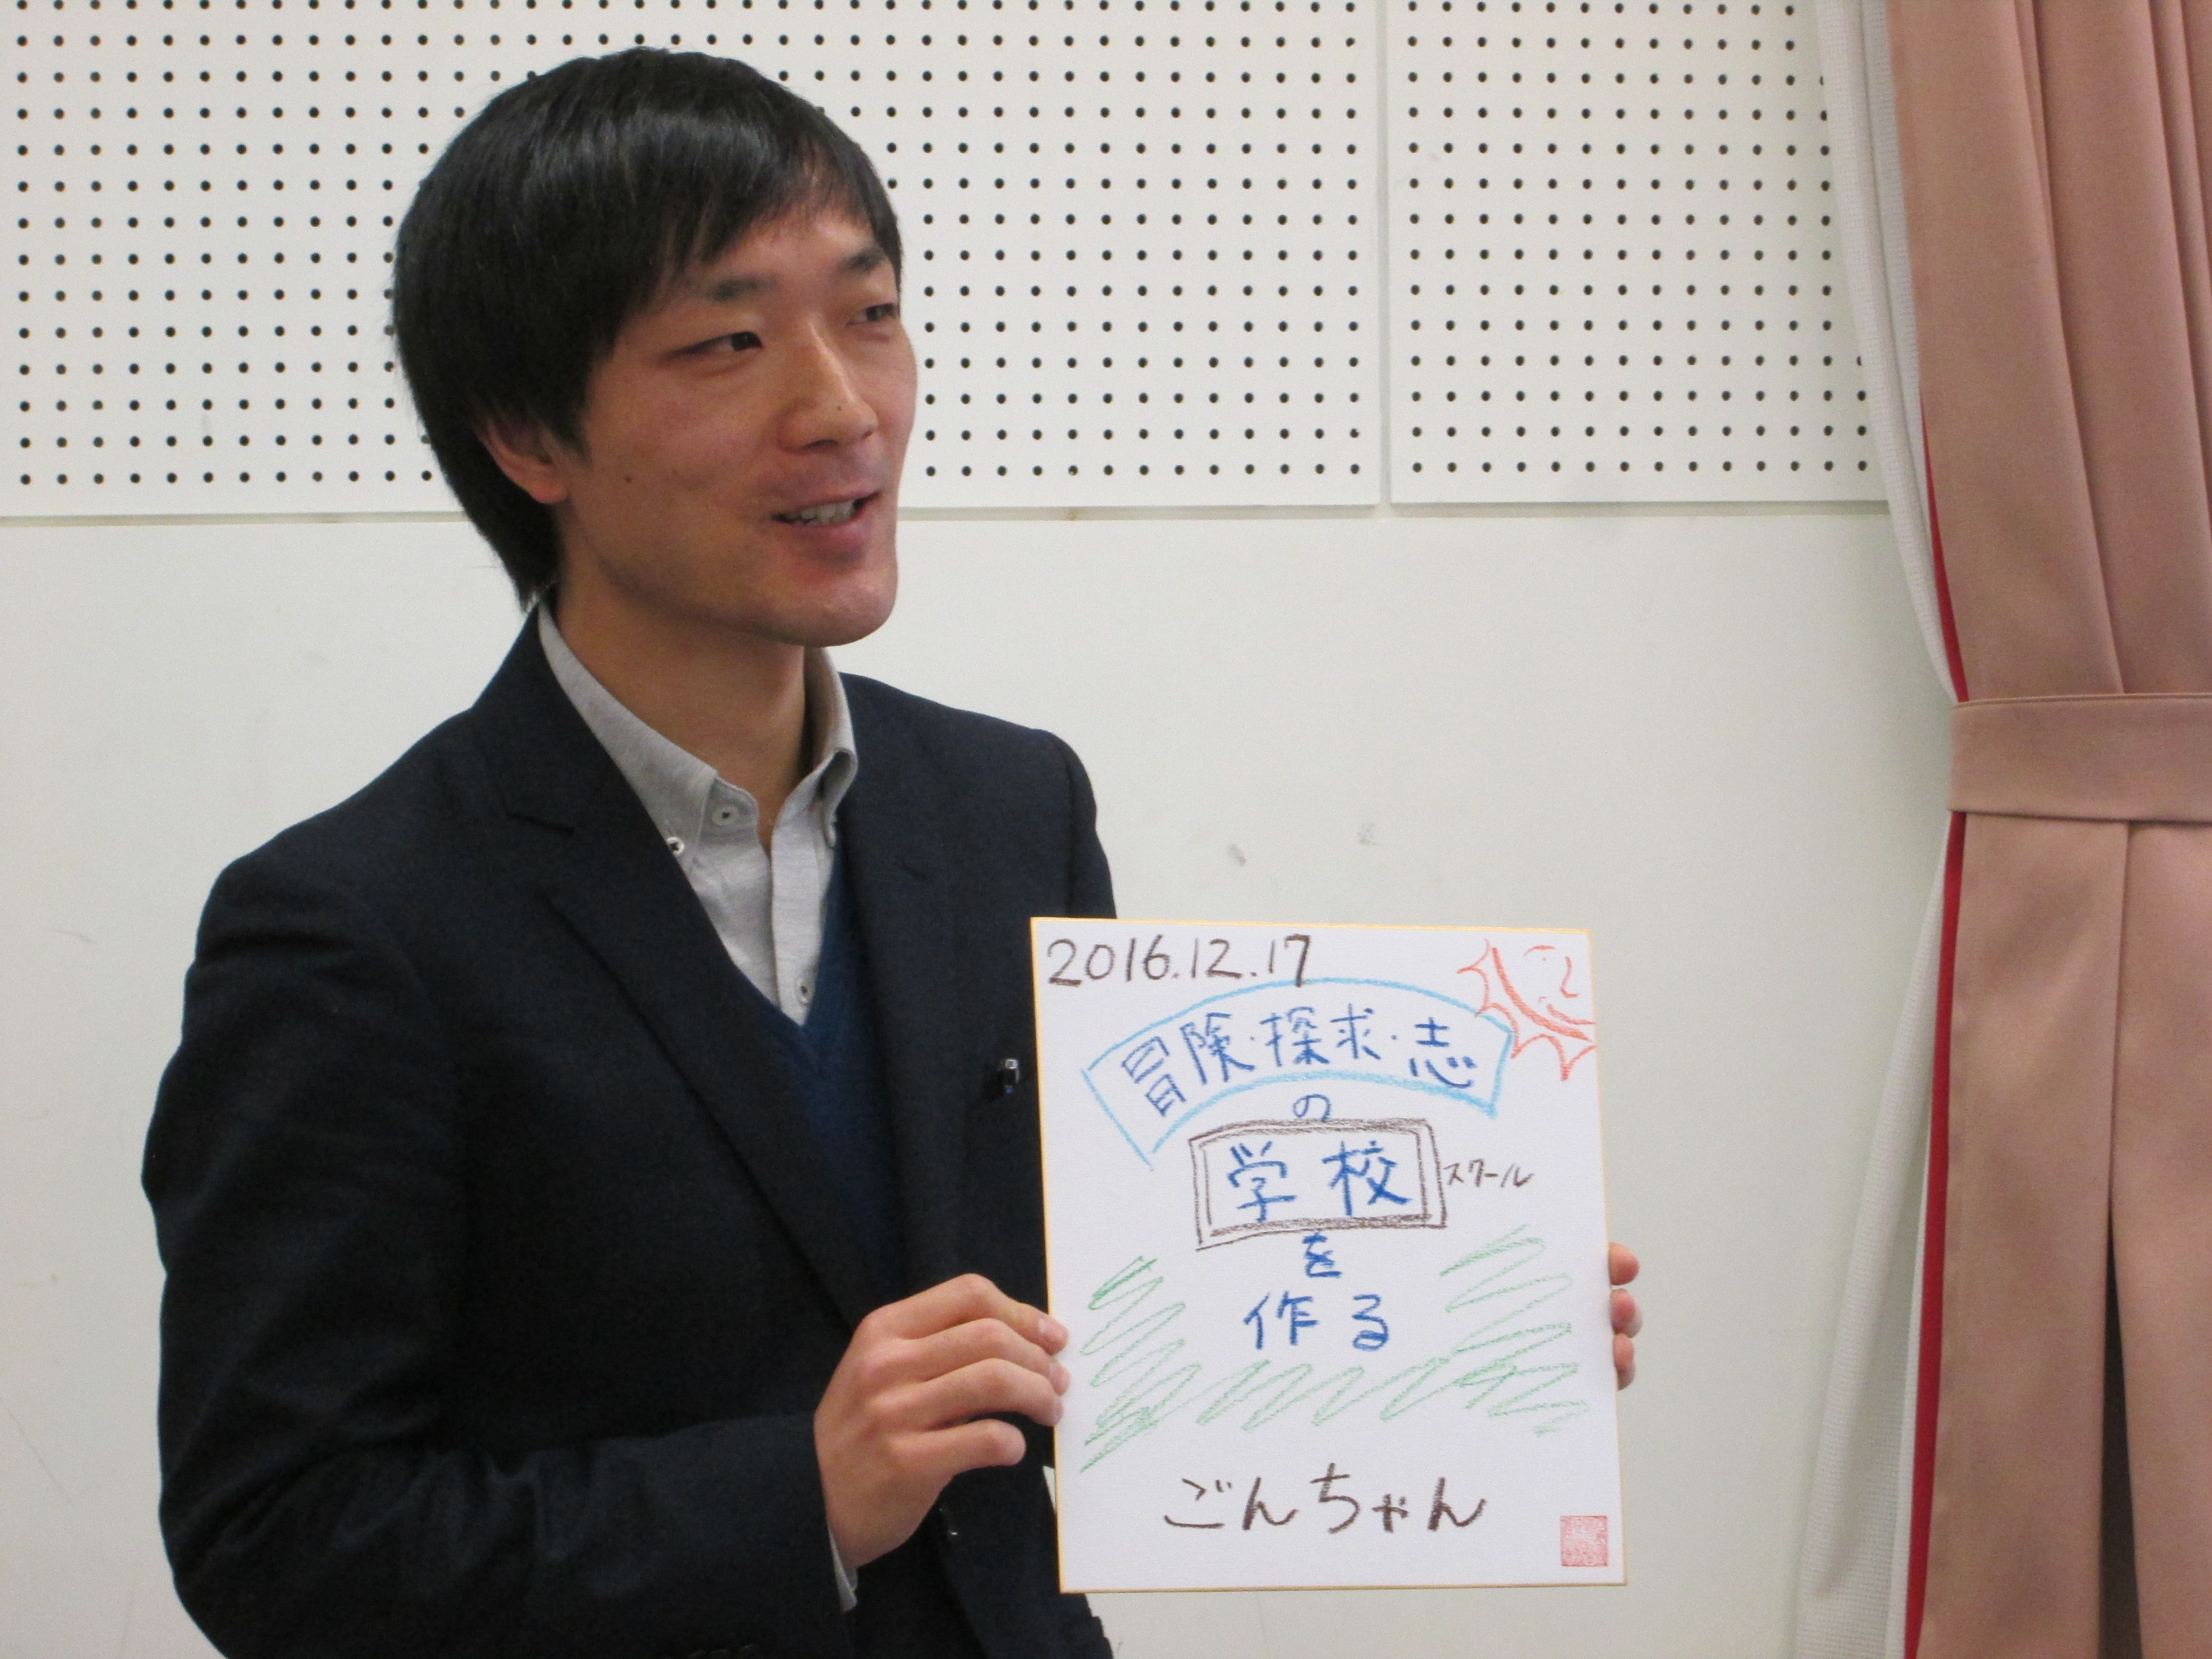 2016.12.17
冒険・探求・志
の
学校
スクール
を
作る
ごんちゃん